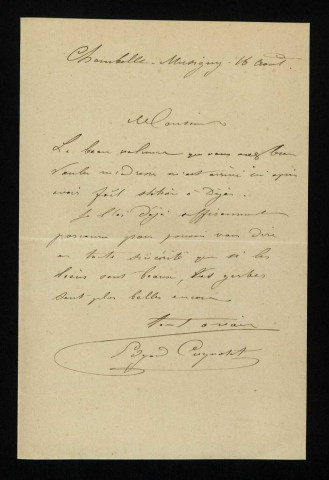 Chambolle-Musigny 16 Aout.
Monsieur
Le beau volume que vous avez bien
voulu m'adresser m'est arrivé ici après
avoir fait station à Dijon.
Je l'ai déjà suffisamment
parcouru pour pouvoir vous dire
en toute sincérité que si les
liens sont beaux, les gerbes
sont plus belles encore